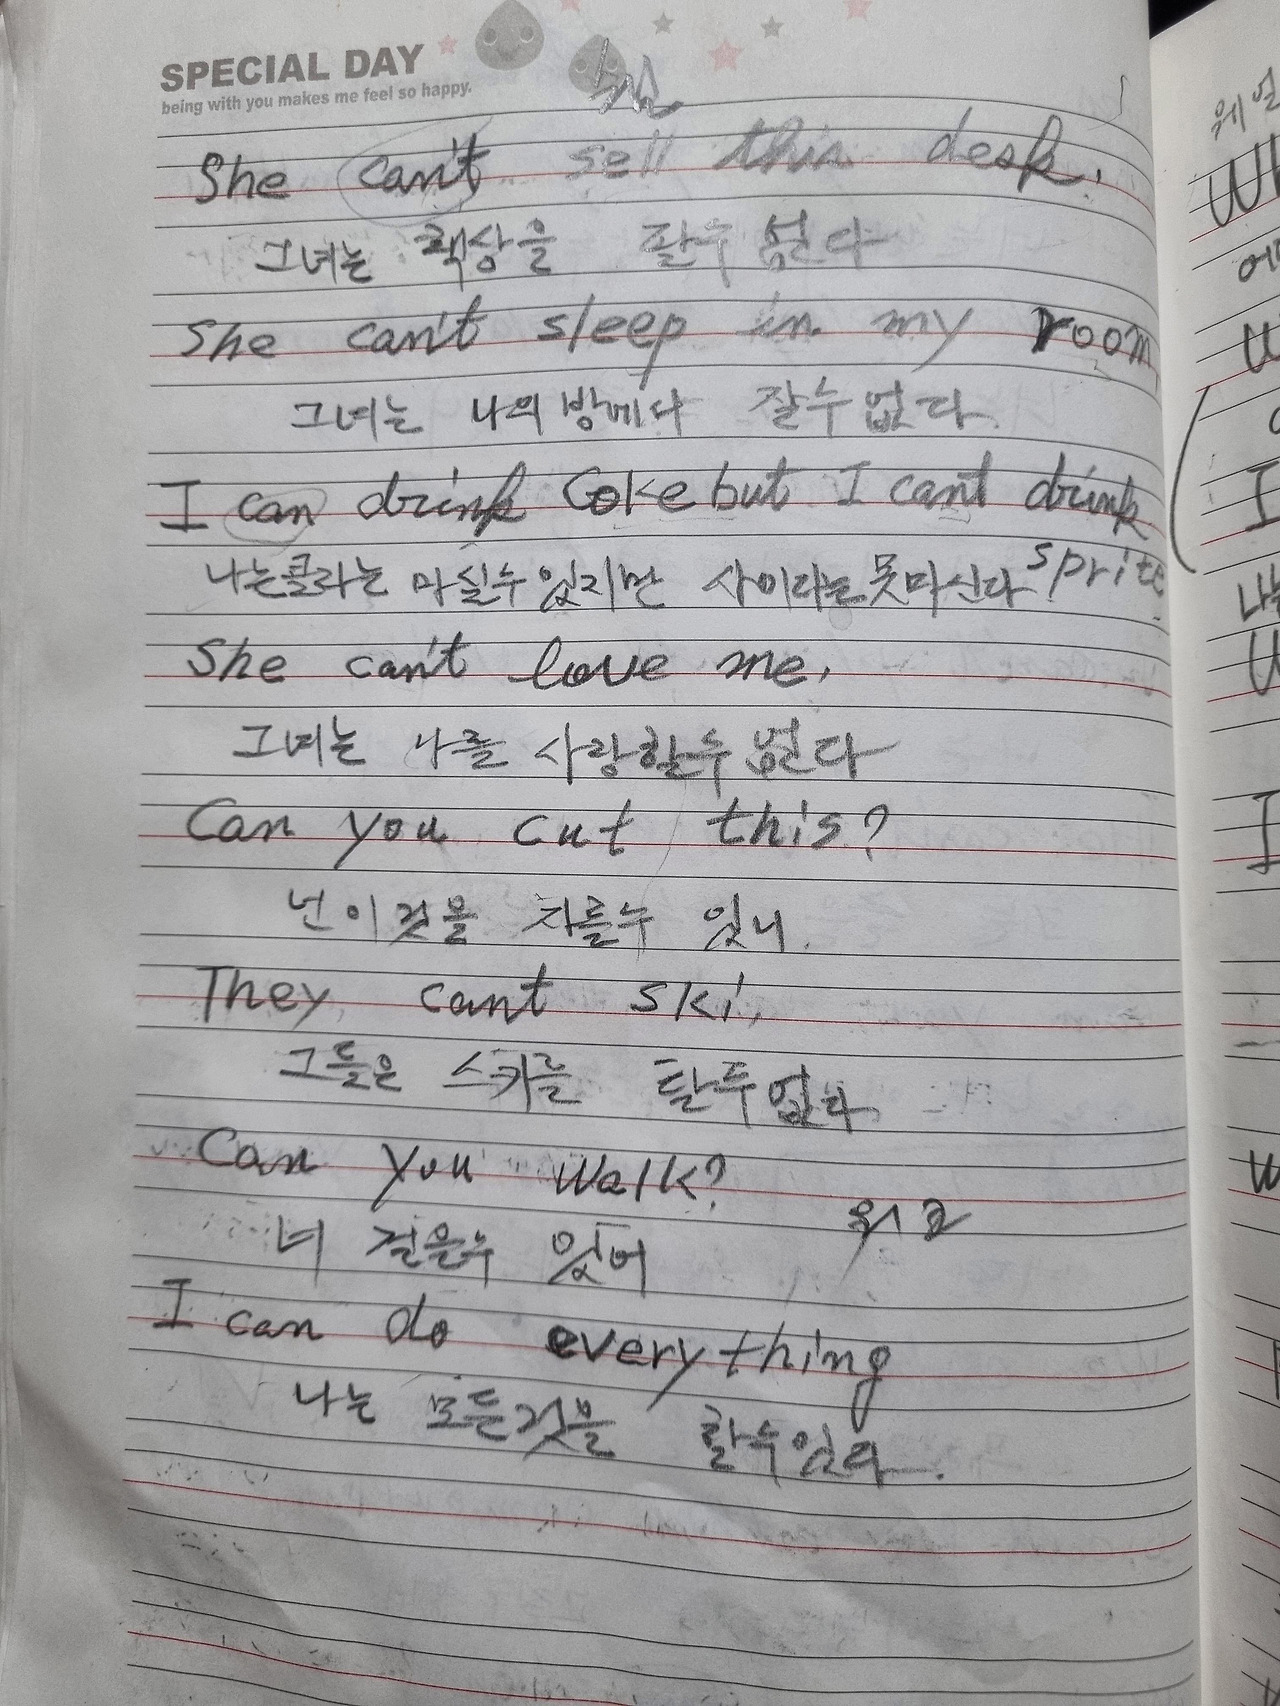 SPECIAL DAY
being with you makes me feel so happy.
She can't sell this desk.
그녀는 책상을 팔수 없다
She can't sleep in my room
그녀는 나의 방에다 잘수없다.
I can drink Coke but I can't drink
sprite.
나는콜라는 마실수있지만 사이다는못마신다
She can't love me.
그녀는 나를 사랑할수 없다
Can you cut this?
넌 이것을 자를수 있니.
They can't ski.
그들은 스키를 탈수없다.
Can you walk?
워크
너 걸을수 있어
I can do everything
나는 모든것을 할수있다.
웨얼